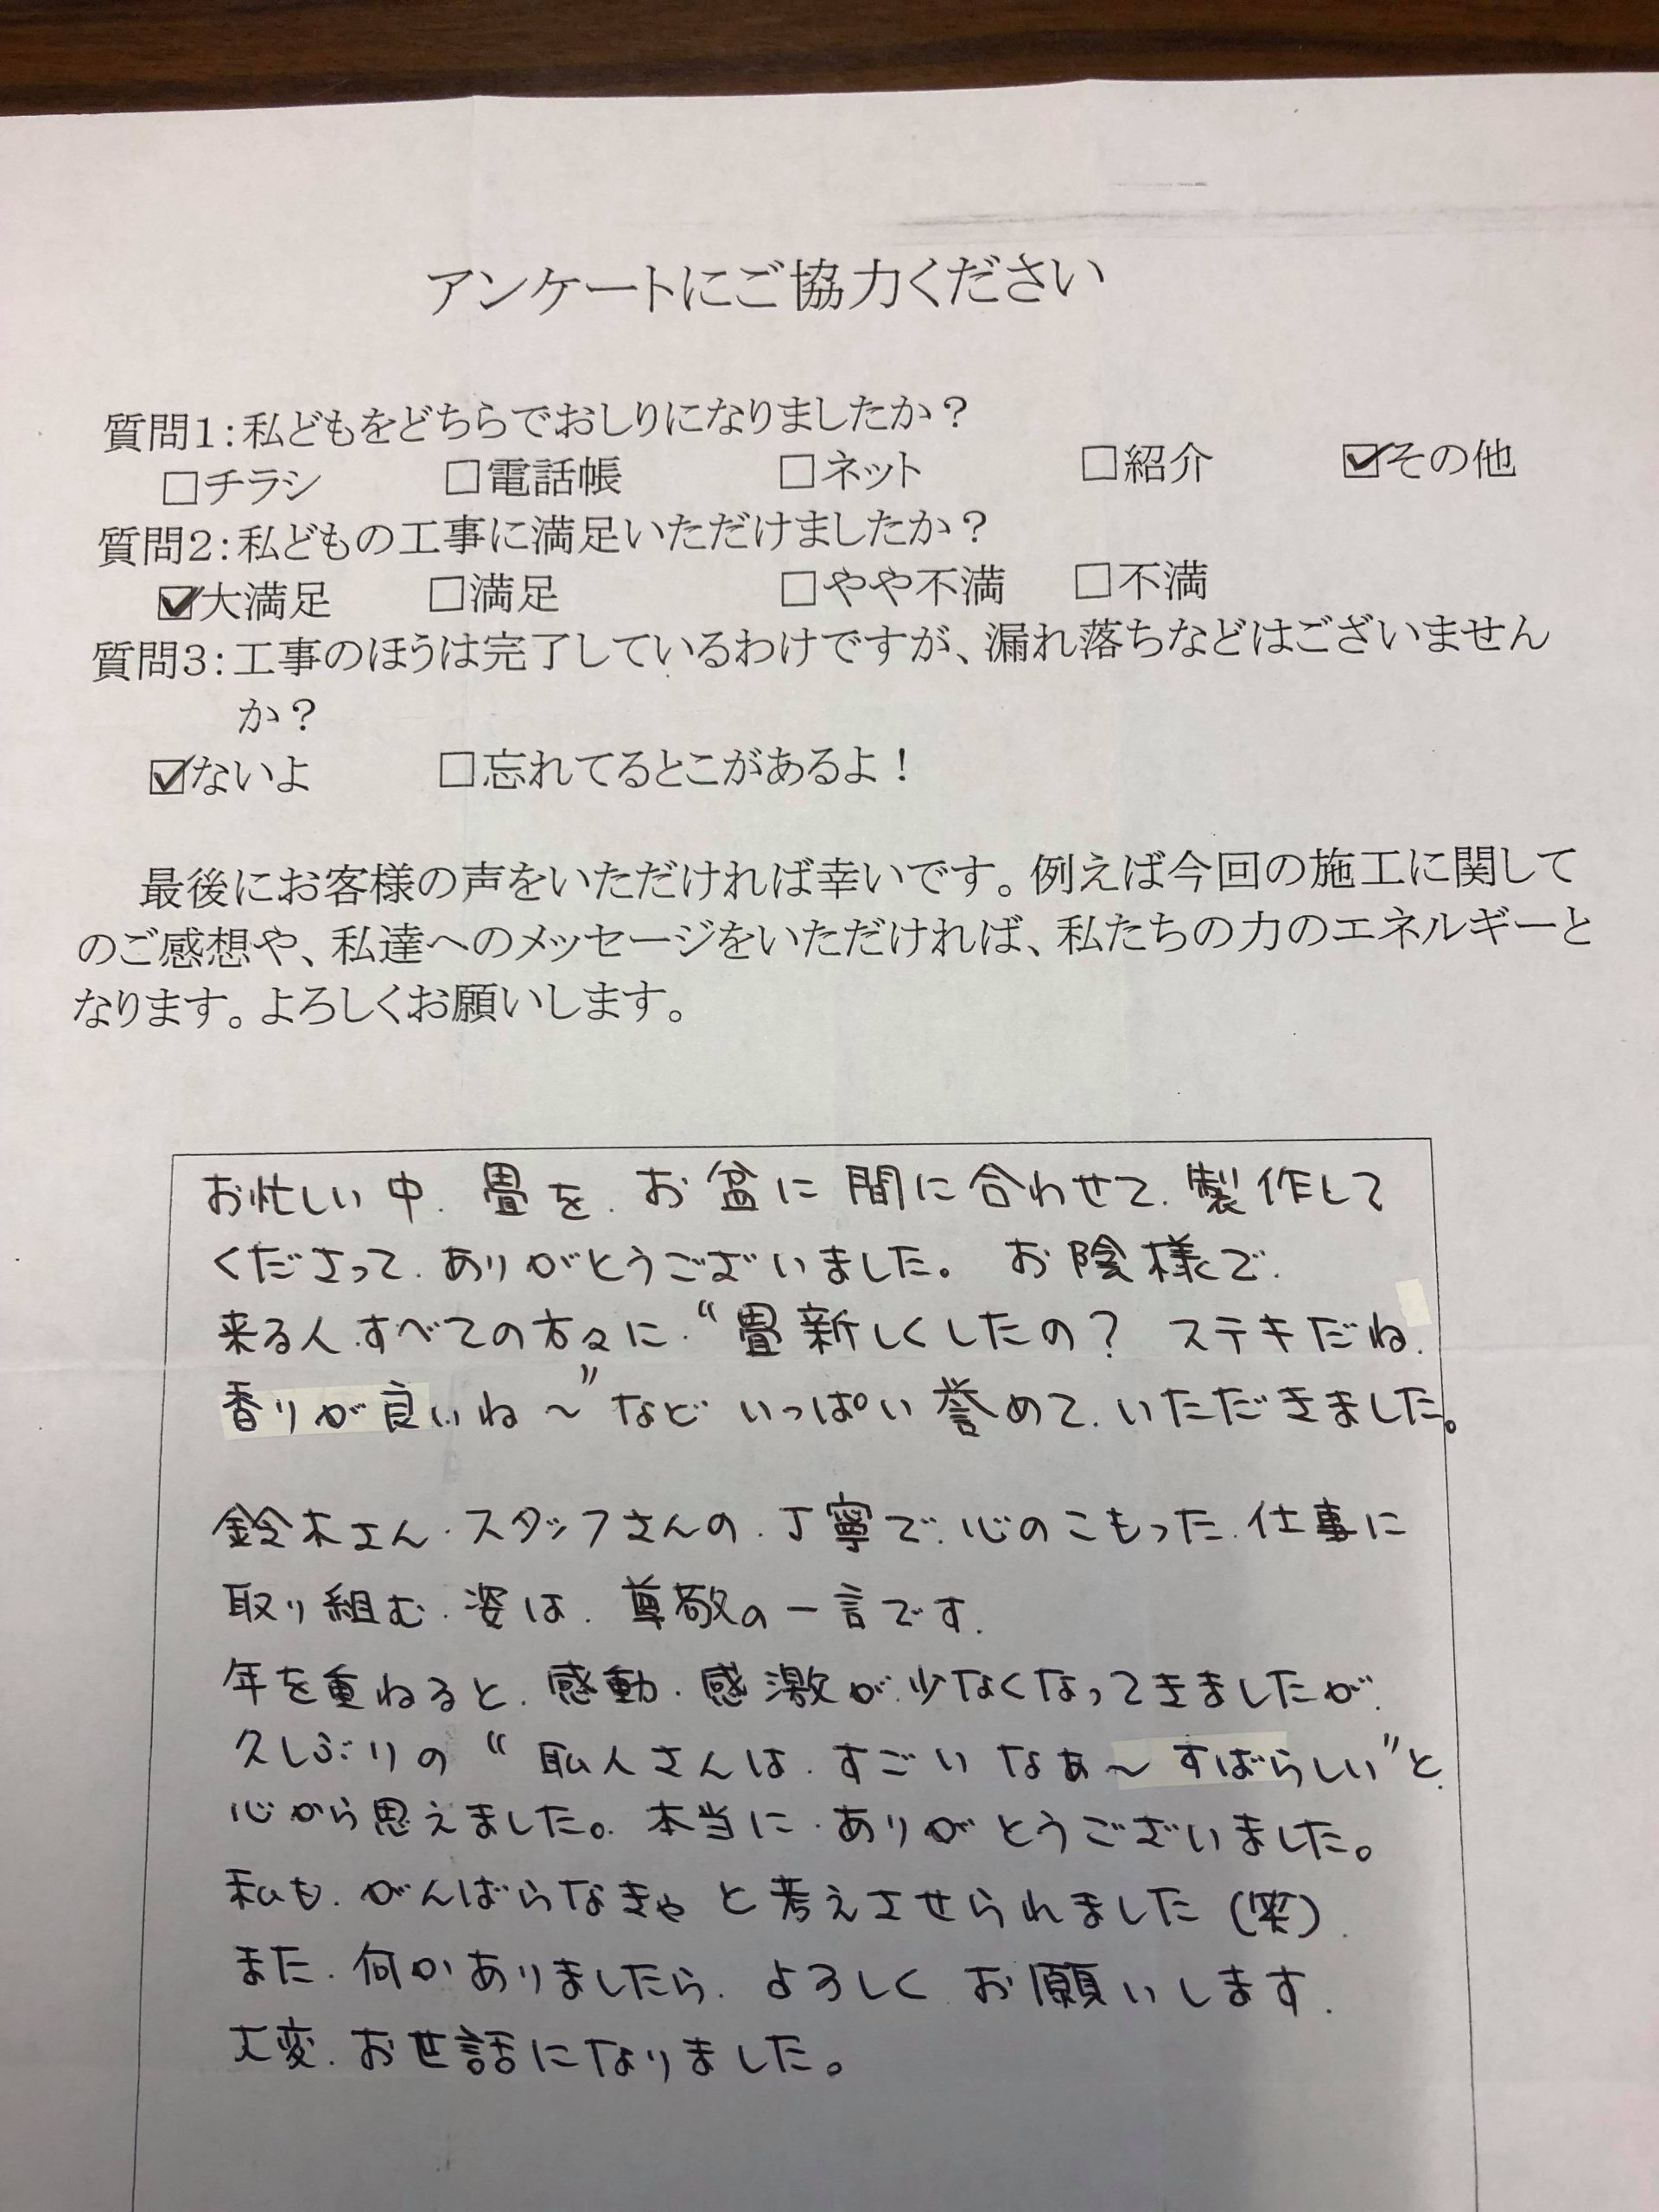 アンケートにご協力ください
質問1：私どもをどちらでおしりになりましたか？
□チラシ □電話帳 □ネット □紹介 ☑その他
質問2：私どもの工事に満足いただけましたか？
☑大満足 □満足 □やや不満 □不満
質問3：工事のほうは完了しているわけですが、漏れ落ちなどはございません
か？
☑ないよ □忘れてるとこがあるよ！
最後にお客様の声をいただければ幸いです。例えば今回の施工に関して
のご感想や、私達へのメッセージをいただければ、私たちの力のエネルギーと
なります。よろしくお願いします。
お忙しい中、畳を、お盆に間に合わせて、製作して
くださって、ありがとうございました。お陰様で、
来る人、すべての方々に、“畳新しくしたの？ ステキだね、
香りが良いね〜”など いっぱい誉めて、いただきました。
鈴木さん、スタッフさんの、丁寧で、心のこもった、仕事に
取り組む、姿は、尊敬の一言です、
年を重ねると、感動、感激が、少なくなってきましたが、
久しぶりの “職人さんは、すごいなぁ〜 すばらしい”と、
心から思えました。本当に、ありがとうございました。
私も、がんばらなきゃと考えさせられました（笑）、
また、何かありましたら、よろしくお願いします、
大変、お世話になりました。